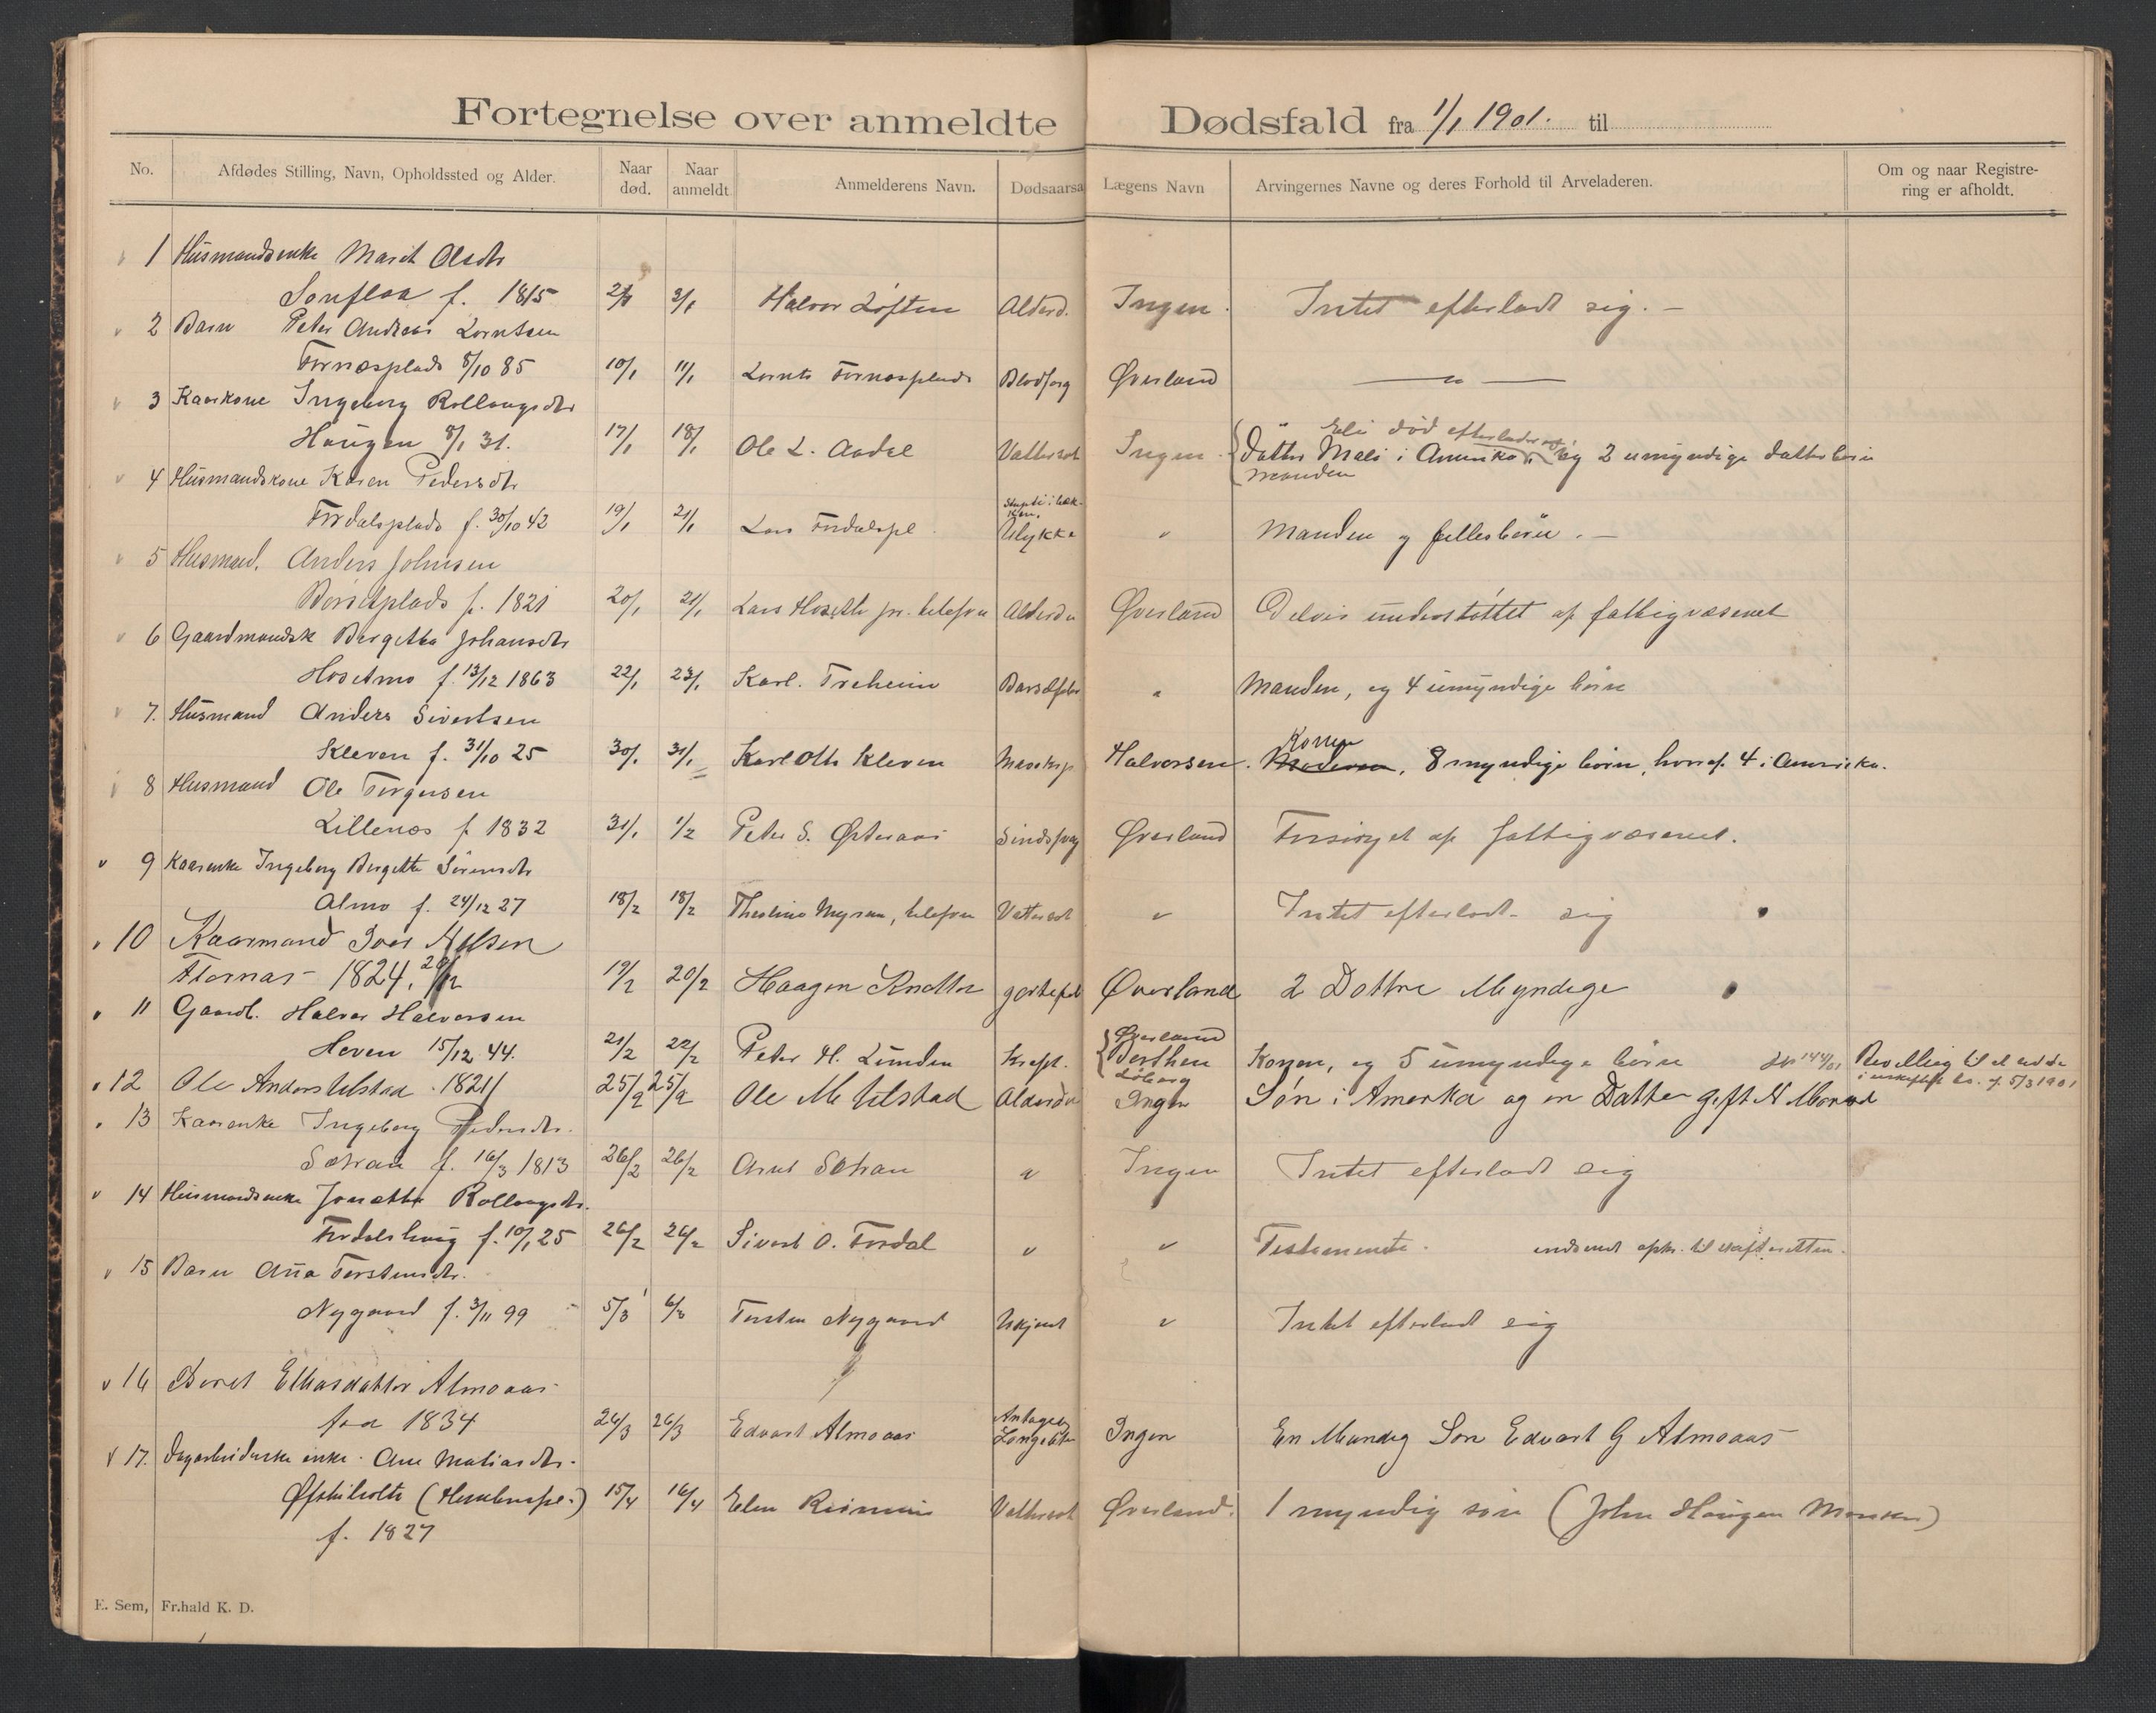 Fortegnelse over anmeldte Dødsfald fra 1/1 1901. til
No. Afdødes Stilling, Navn, Opholdssted og Alder. Naar død. Naar anmeldt Anmelderens Navn. Dødsaarsa Lægens Navn Arvingernes Navne og deres Forhold til Arveladeren. Om og naar Registrering er afholdt.
1 Husmandsenke Marit Olsdtr
f. 1815 2/1 3/1 Halvor Løften Alderd. Ingen. Intet efterladt sig. —
2 Barn Peter Andreas Lorntsen
Fornæsplads 8/10 85 10/1 11/1 Lornts Fornæsplads Blodforg Øverland — " —
3 Kaarkone Ingeborg Rollougsdtr
Eli død efterlader sig
Haugen 8/1 31. 17/1 18/1 Ole L. Aadal Vattersot Ingen. Datter Mali i Amerika og 2 umyndige datterbørn
manden
4 Husmandskone Karen Pedersdtr
Fordalsplads f. 30/10 42 19/1 21/1 Lars Fordalspl. Ulykke " Manden og fellesbørn. —
5 Husmand. Anders Johnsen
Børsetplads f. 1821 20/1 21/1 Lars Hosette jr. telefon Alderdo Øverland Delvis understøttet af fattigvæsenet
6 Gaardmandsk Bergitta Johansdtr
Hosetmo f. 13/12 1863 22/1 23/1 Karl. Treheim Barselfeber " Manden, og 4 umyndige børn
7. Husmand Anders Sivertsen
Konen
Kleven f. 31/10 25 30/1 31/1 Karl Otto Kleven Halvorsen. 8 myndige børn, hvoraf 4 i Amerika.
8 Husmand Ole Torgersen
Lillenæs f 1832 31/1 1/2 Peter S. Østeraas Sindssyg Øverland Forsørget af fattigvæsenet.
9 Kaarenke Ingeborg Bergitte Sørensdtr
Almo f. 24/12 27 18/2 18/2 Myran, telefon Vattersot " Intet efterladt sig
10 Kaarmand Iver Nilsen
1824. 19/2 20/2 Haagen Øverland 2 Døttre Myndige
11 Gaardb. Halvor Halvorsen
Øverland
Hoven 15/12 44. 21/2 22/2 Peter H. Lunden Kreft. Konen, og 5 umyndige børn Bevilling til
5/3 1901
12 Ole Anders Ulstad 1821 25/2 25/2 Ole M Ulstad Alderdo Ingen Søn i Amerka og en Datter gift
13 Kaarenke Ingeborg Pedersdtr.
Sætran f. 16/3 1813 26/2 26/2 Arnt Sætran " Ingen Intet efterladt sig
14 Husmandsenke Jonetta Rollougsdtr.
Fordalshaug f. 10/1 25 26/2 26/2 Sivert O. Fordal " " Testamente. indsendt til skifteretten.
15 Barn Ana Torstensdtr.
Nygaard f. 3/11 99 5/3 6/3 Torsten Nygaard Ukjent " Intet efterladt sig
16 Beret Eliasdatter Almoaas
fød 1834 26/3 26/3 Edvart Almoaas Ingen En Mundig Søn Edvart G Almoaas
17. enke. Ane Matiasdtr.
15/4 16/4 Vattersot Øverland. 1 myndig søn (John Haugen)
f. 1827
E. Sem, Fr.hald K. D.